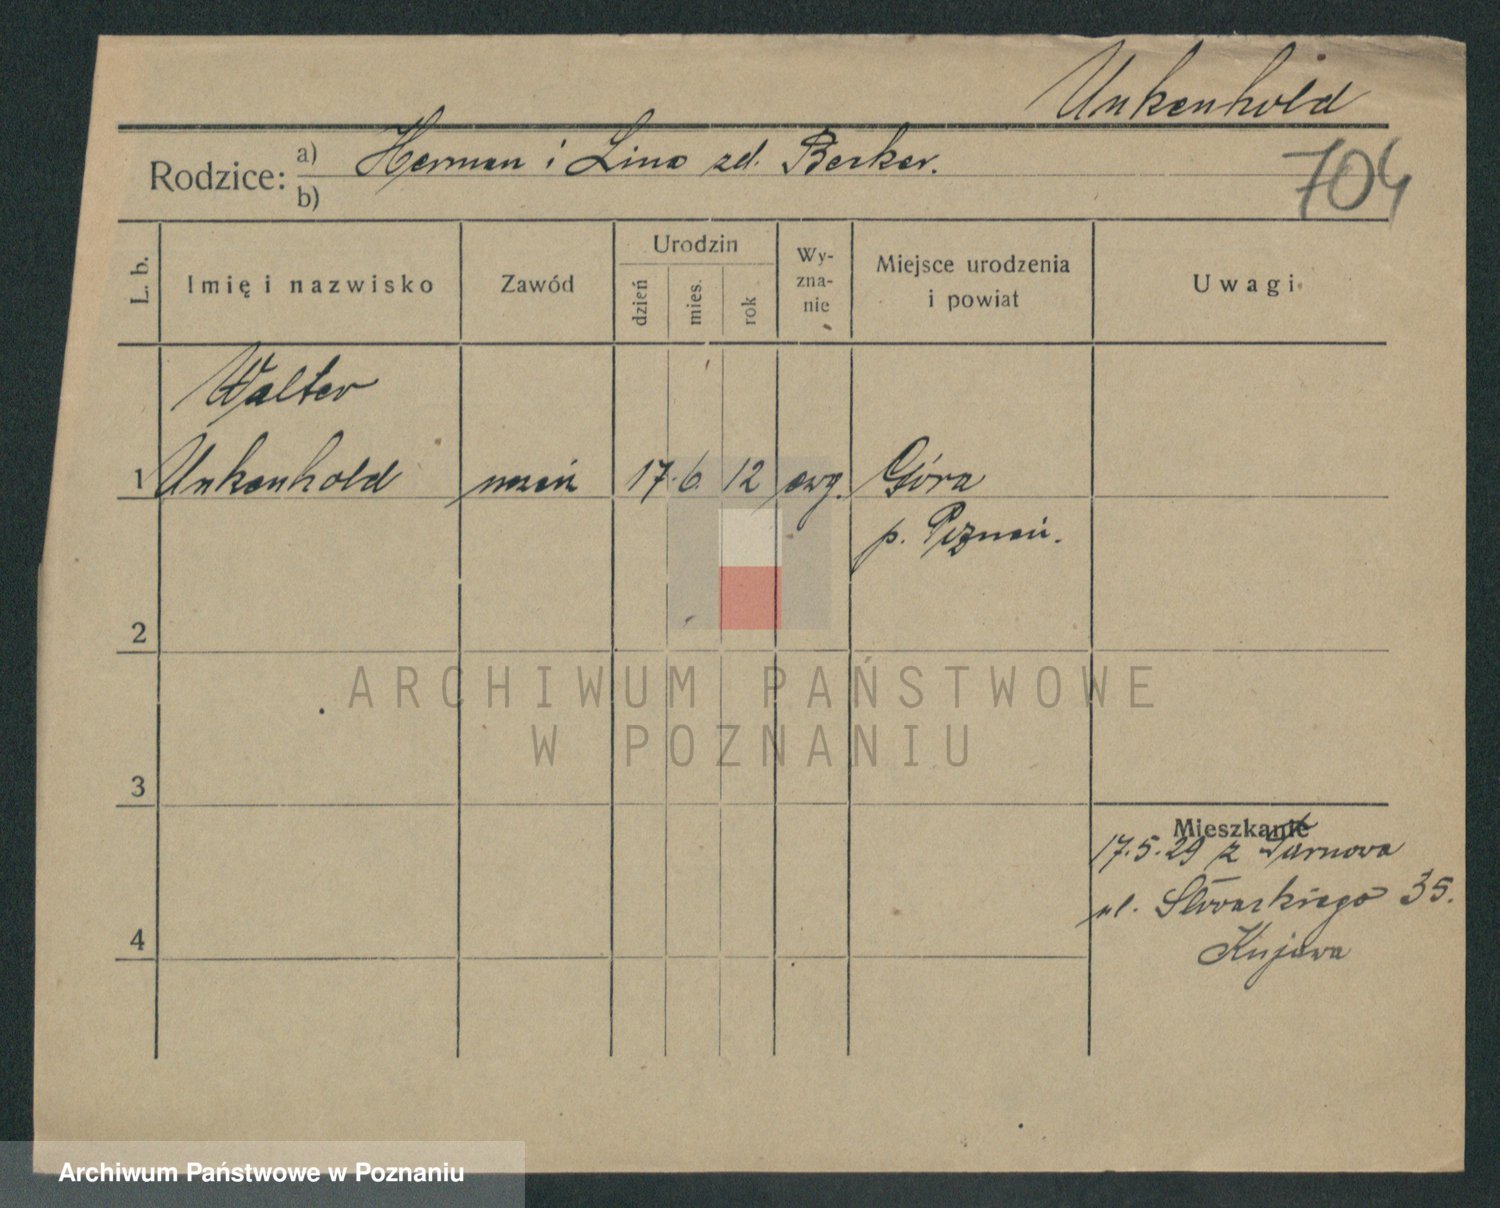 Unkenhold
Rodzice: a) Herman i Lina zd. Berker.
b)
704
L. b. Imię i nazwisko Zawód Urodzin dzień mies. rok Wyznanie Miejsce urodzenia i powiat Uwagi
Walter
1 Unkenhold uczeń 17. 6. 12 ewg. Góra
p. Poznań.
2
ARCHIWUM PAŃSTWOWE
W POZNANIU
3
Mieszkanie
17.5.29 z Tarnowa
4 ul. Słowackiego 35.
Kujawa
Archiwum Państwowe w Poznaniu